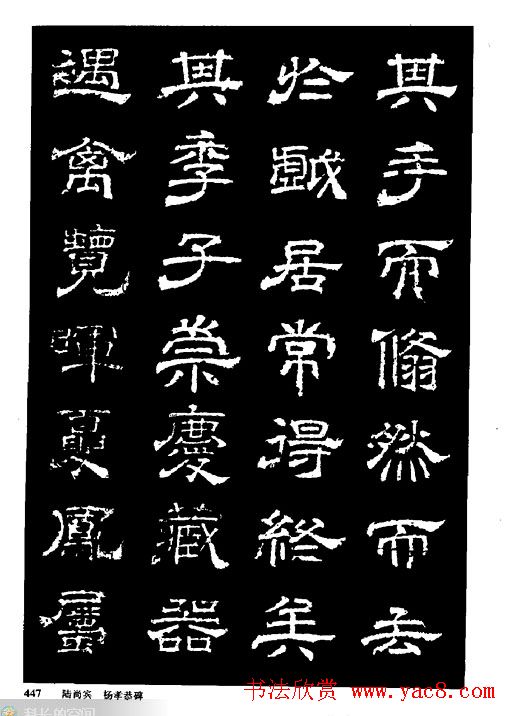 其手而翛然而去
於戱居常得終矣
其季子崇慶藏器
遇禽覽暉鳳
447 陆尚宾 杨孝恭碑
书法欣赏 www.yac8.com
科长的空间